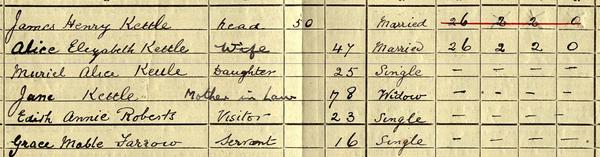 James Henry Kettle head 50 Married 26 2 2 0
Alice Elizabeth Kettle Wife 47 Married 26 2 2 0
Muriel Alice Kettle Daughter 25 Single — — — —
Jane Kettle Mother in Law 78 Widow — — — —
Edith Annie Roberts Visitor 23 Single — — — —
Grace Mable Farrow Servant 16 Single — — — —